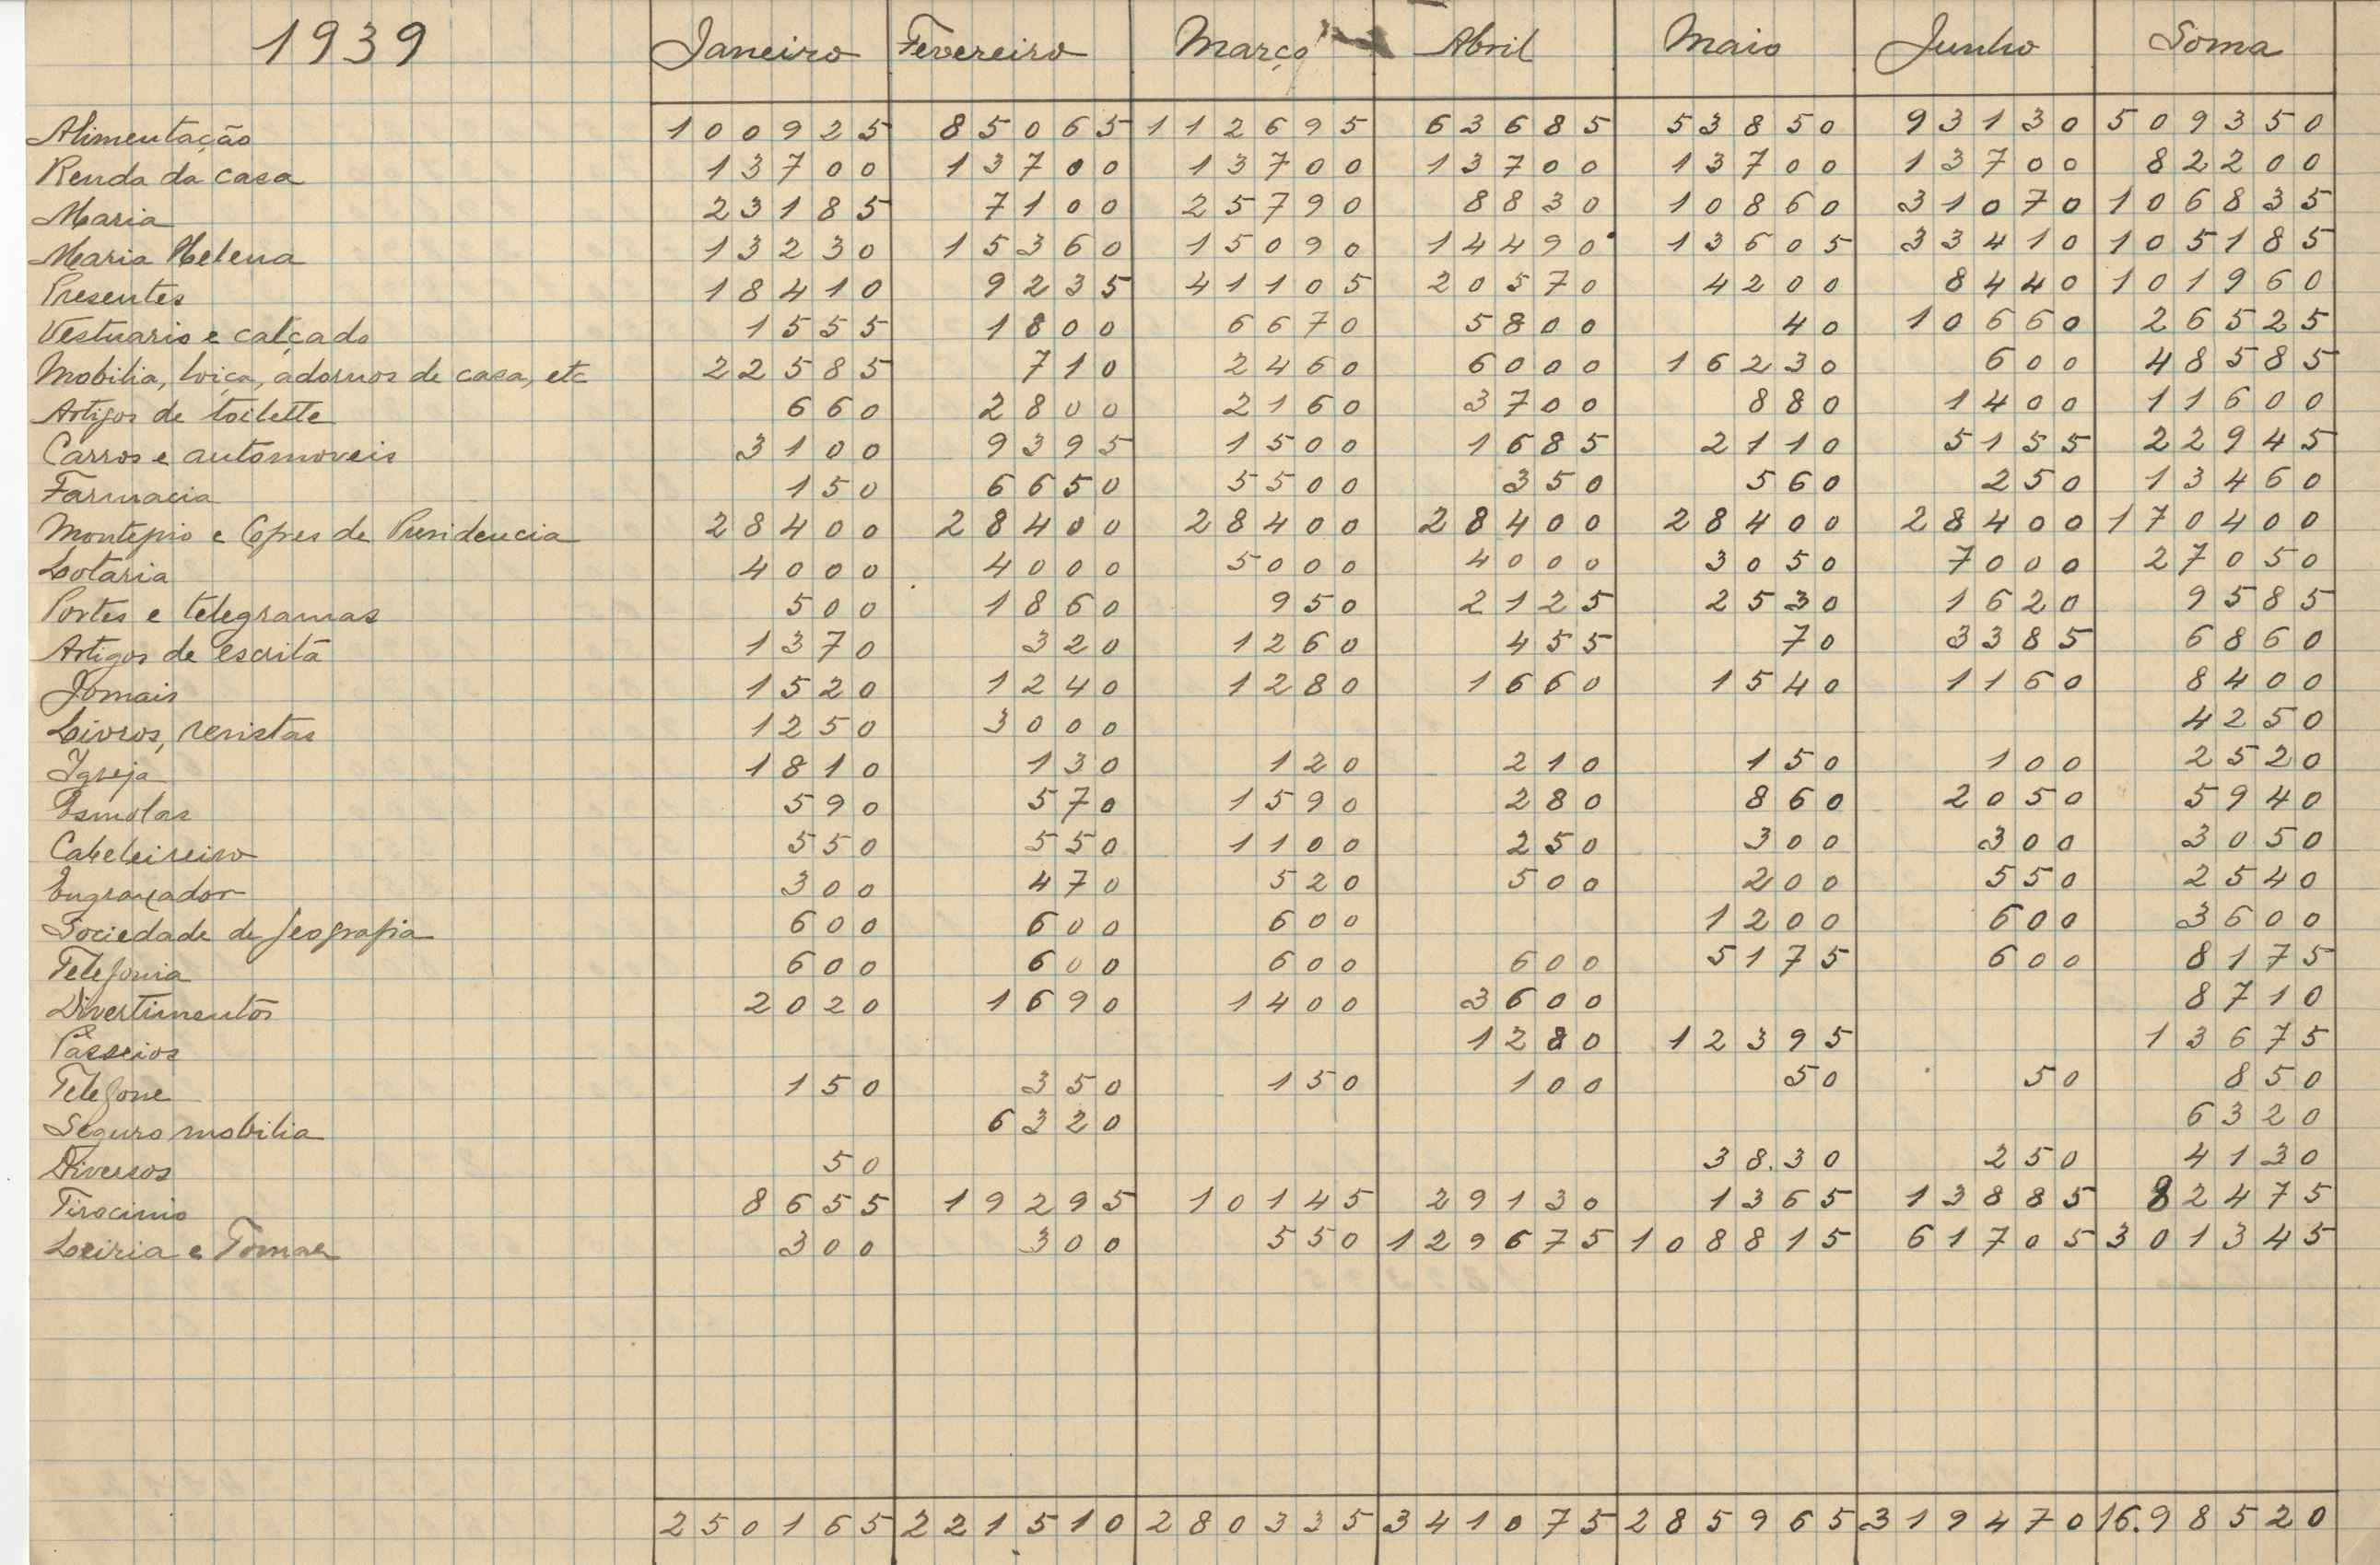 1939 Janeiro Fevereiro Março Abril Maio Junho Soma
Alimentação 100925 85065 112695 63685 53850 93130 509350
Renda da casa 13700 13700 13700 13700 13700 13700 82200
Maria 23185 7100 25790 8830 10860 31070 106835
Maria Helena 13230 15360 15090 14490 13605 33410 105185
Presentes 18410 9235 41105 20570 4200 8440 101960
Vestuario e calçado 1555 1800 6670 5800 40 10660 26525
Mobilia, loiça, adornos de casa, etc 22585 710 2460 6000 16230 600 48585
Artigos de toilette 660 2800 2160 3700 880 1400 11600
Carros e automoveis 3100 9395 1500 1685 2110 5155 22945
Farmacia 150 6650 5500 350 560 250 13460
Montepio e Cofres de Previdencia 28400 28400 28400 28400 28400 28400 170400
Lotaria 4000 4000 5000 4000 3050 7000 27050
Portes e telegramas 500 1860 950 2125 2530 1620 9585
Artigos de escrita 1370 320 1260 455 70 3385 6860
Jornais 1520 1240 1280 1660 1540 1160 8400
Livros, revistas 1250 3000 4250
Igreja 1810 130 120 210 150 100 2520
Esmolas 590 570 1590 280 860 2050 5940
Cabeleireiro 550 550 1100 250 300 300 3050
Engraxador 300 470 520 500 200 550 2540
Sociedade de Geografia 600 600 600 1200 600 3600
Telefonia 600 600 600 600 5175 600 8175
Divertimentos 2020 1690 1400 3600 8710
Passeios 1280 12395 13675
Telefone 150 350 150 100 50 50 850
Seguro mobilia 6320 6320
Diversos 50 38.30 250 4130
Tirocinio 8655 19295 10145 29130 1365 13885 82475
Leiria e Tomar 300 300 550 129675 108815 61705 301345
250165 221510 280335 341075 285965 319470 16.98520